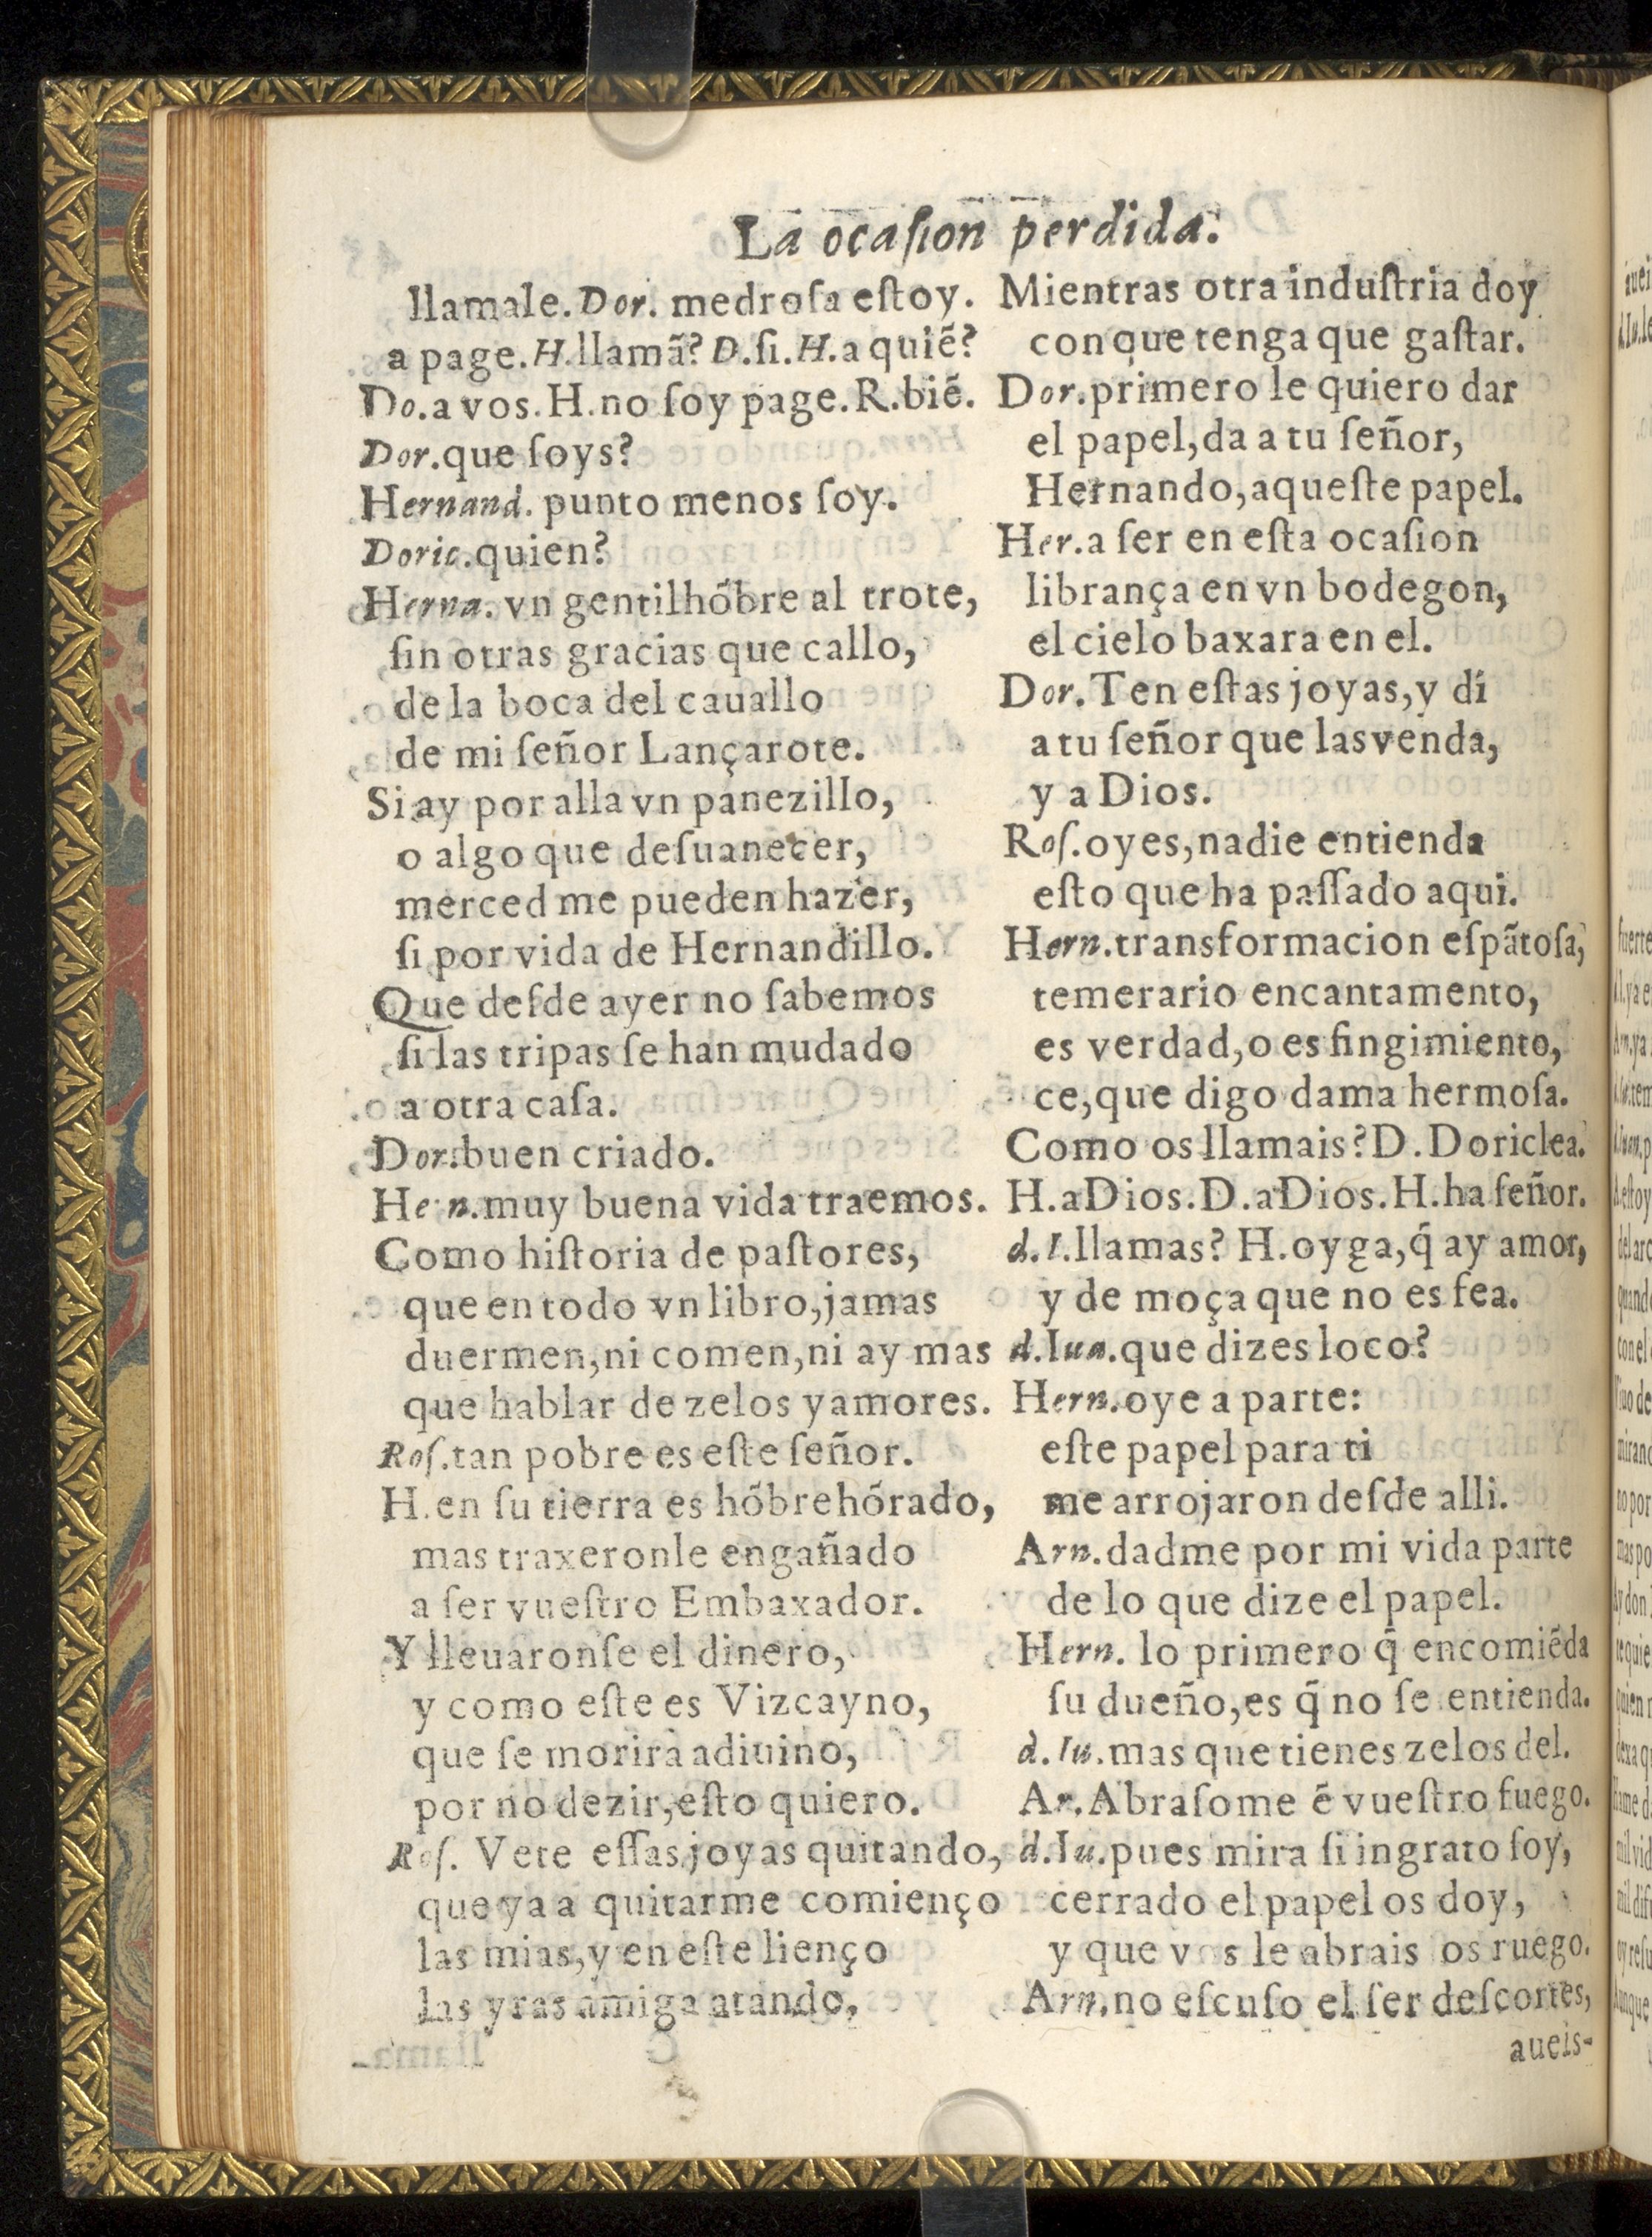 La ocaſion perdida.
llamale. Dor. medroſa eſtoy.
a page. H. llamã? D. ſi. H. a quiẽ?
Do. a vos. H. no ſoy page. R. biẽ.
Dor. que ſoys?
Hernand. punto menos ſoy.
Doric. quien?
Herna. vn gentilhõbre al trote,
ſin otras gracias que callo,
de la boca del cauallo
de mi ſeñor Lançarote.
Si ay por alla vn panezillo,
o algo que deſuanecer,
merced me pueden hazer,
ſi por vida de Hernandillo.
Que deſde ayer no ſabemos
ſi las tripas ſe han mudado
a otra caſa.
Dor. buen criado.
Hern. muy buena vida traemos.
Como hiſtoria de paſtores,
que en todo vn libro, jamas
duermen, ni comen, ni ay mas
que hablar de zelos y amores.
Roſ. tan pobre es eſte ſeñor.
H. en ſu tierra es hõbre hõrado,
mas traxeronle engañado
a ſer vueſtro Embaxador.
Y lleuaronſe el dinero,
y como eſte es Vizcayno,
que ſe morira adiuino,
por no dezir, eſto quiero.
Roſ. Vete eſſas joyas quitando,
que ya a quitarme comienço
las mias, y en eſte lienço
las yras amiga atando,
Mientras otra induſtria doy
con que tenga que gaſtar.
Dor. primero le quiero dar
el papel, da a tu ſeñor,
Hernando, aqueſte papel.
Her. a ſer en eſta ocaſion
librança en vn bodegon,
el cielo baxara en el.
Dor. Ten eſtas joyas, y di
a tu ſeñor que las venda,
y a Dios.
Roſ. oyes, nadie entienda
eſto que ha paſſado aqui.
Hern. transformacion eſpãtoſa,
temerario encantamento,
es verdad, o es fingimiento,
ce, que digo dama hermoſa.
Como os llamais? D. Doriclea.
H. a Dios. D. a Dios. H. ha ſeñor.
d. I. llamas? H. oyga, q̃ ay amor,
y de moça que no es fea.
d. Iua. que dizes loco?
Hern. oye a parte:
eſte papel para ti
me arrojaron deſde alli.
Arn. dadme por mi vida parte
de lo que dize el papel.
Hern. lo primero q̃ encomiẽda
ſu dueño, es q̃ no ſe entienda.
d. Iu. mas que tienes zelos del.
Ar. Abraſome ẽ vueſtro fuego.
d. Iu. pues mira ſi ingrato ſoy,
cerrado el papel os doy,
y que vos le abrais os ruego.
Arn. no eſcuſo el ſer deſcortes,
aueis-